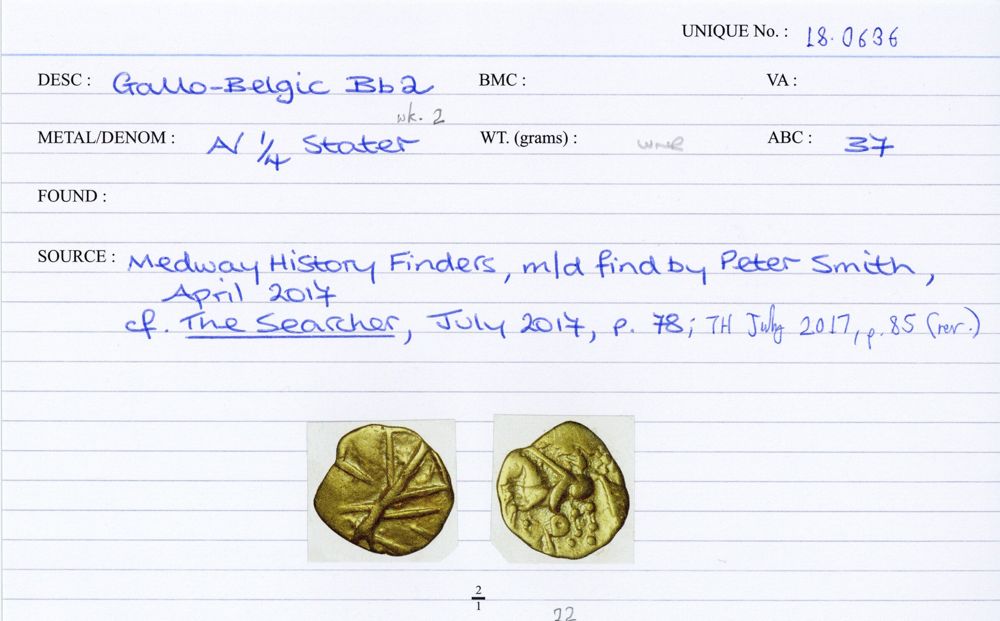 UNIQUE No. : 18.0636
DESC : Gallo-Belgic Bb2 BMC : VA :
wk. 2
METAL/DENOM : A/ 1/4 Stater WT. (grams) : wnr ABC : 37
FOUND :
SOURCE : Medway History Finders, m/d find by Peter Smith,
April 2017
cf. The Searcher, July 2017, p. 78; TH July 2017, p. 85 (rev.)
2/1
22